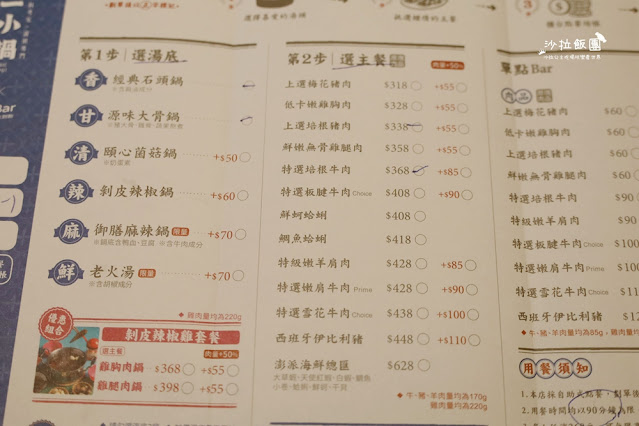 小鍋
Bar
選擇喜愛的湯頭
沙拉飯團
第1步 選湯底
香 經典石頭鍋
甘 源味大骨鍋
清 頤心菌菇鍋 +$50
※奶蛋素
辣 剝皮辣椒鍋 +$60
麻 御膳麻辣鍋 限量 +$70
※鍋底含鴨血、豆腐 ※含牛肉成分
鮮 老火湯 限量 +$70
※含胡椒成分
◆雞肉量均為220g
優惠組合
剝皮辣椒雞套餐
選主餐 肉量+50%
雞胸肉鍋 $368 +$55
雞腿肉鍋 $398 +$55
第2步 選主餐 肉量+50%
上選梅花豬肉 $318 +$55
低卡嫩雞胸肉 $328 +$55
上選培根豬肉 $338 +$55
鮮嫩無骨雞腿肉 $358 +$55
特選培根牛肉 $368 +$85
特選板腱牛肉 Choice $408 +$90
鮮蚵蛤蜊 $408
鯛魚蛤蜊 $418
特級嫩羊肩肉 $428 +$85
特選嫩肩牛肉 Prime $428 +$90
特選雪花牛肉 Choice $438 +$100
西班牙伊比利豬 $448 +$110
澎派海鮮總匯 $628
◆牛、豬、羊肉量均為170g
雞肉量均為220g
單點Bar
肉品
上選梅花豬肉 $60
低卡嫩雞胸肉 $60
上選培根豬肉 $60
鮮嫩無骨雞腿肉 $60
特選培根牛肉 $90
特級嫩羊肩肉 $90
特選板腱牛肉 Choice $100
特選嫩肩牛肉 Prime $100
特選雪花牛肉 Choice $110
西班牙伊比利豬
◆牛、豬、羊肉量均為85g
用餐須知
1.本店採自助式點餐
2.用餐時間均以90分鐘為限